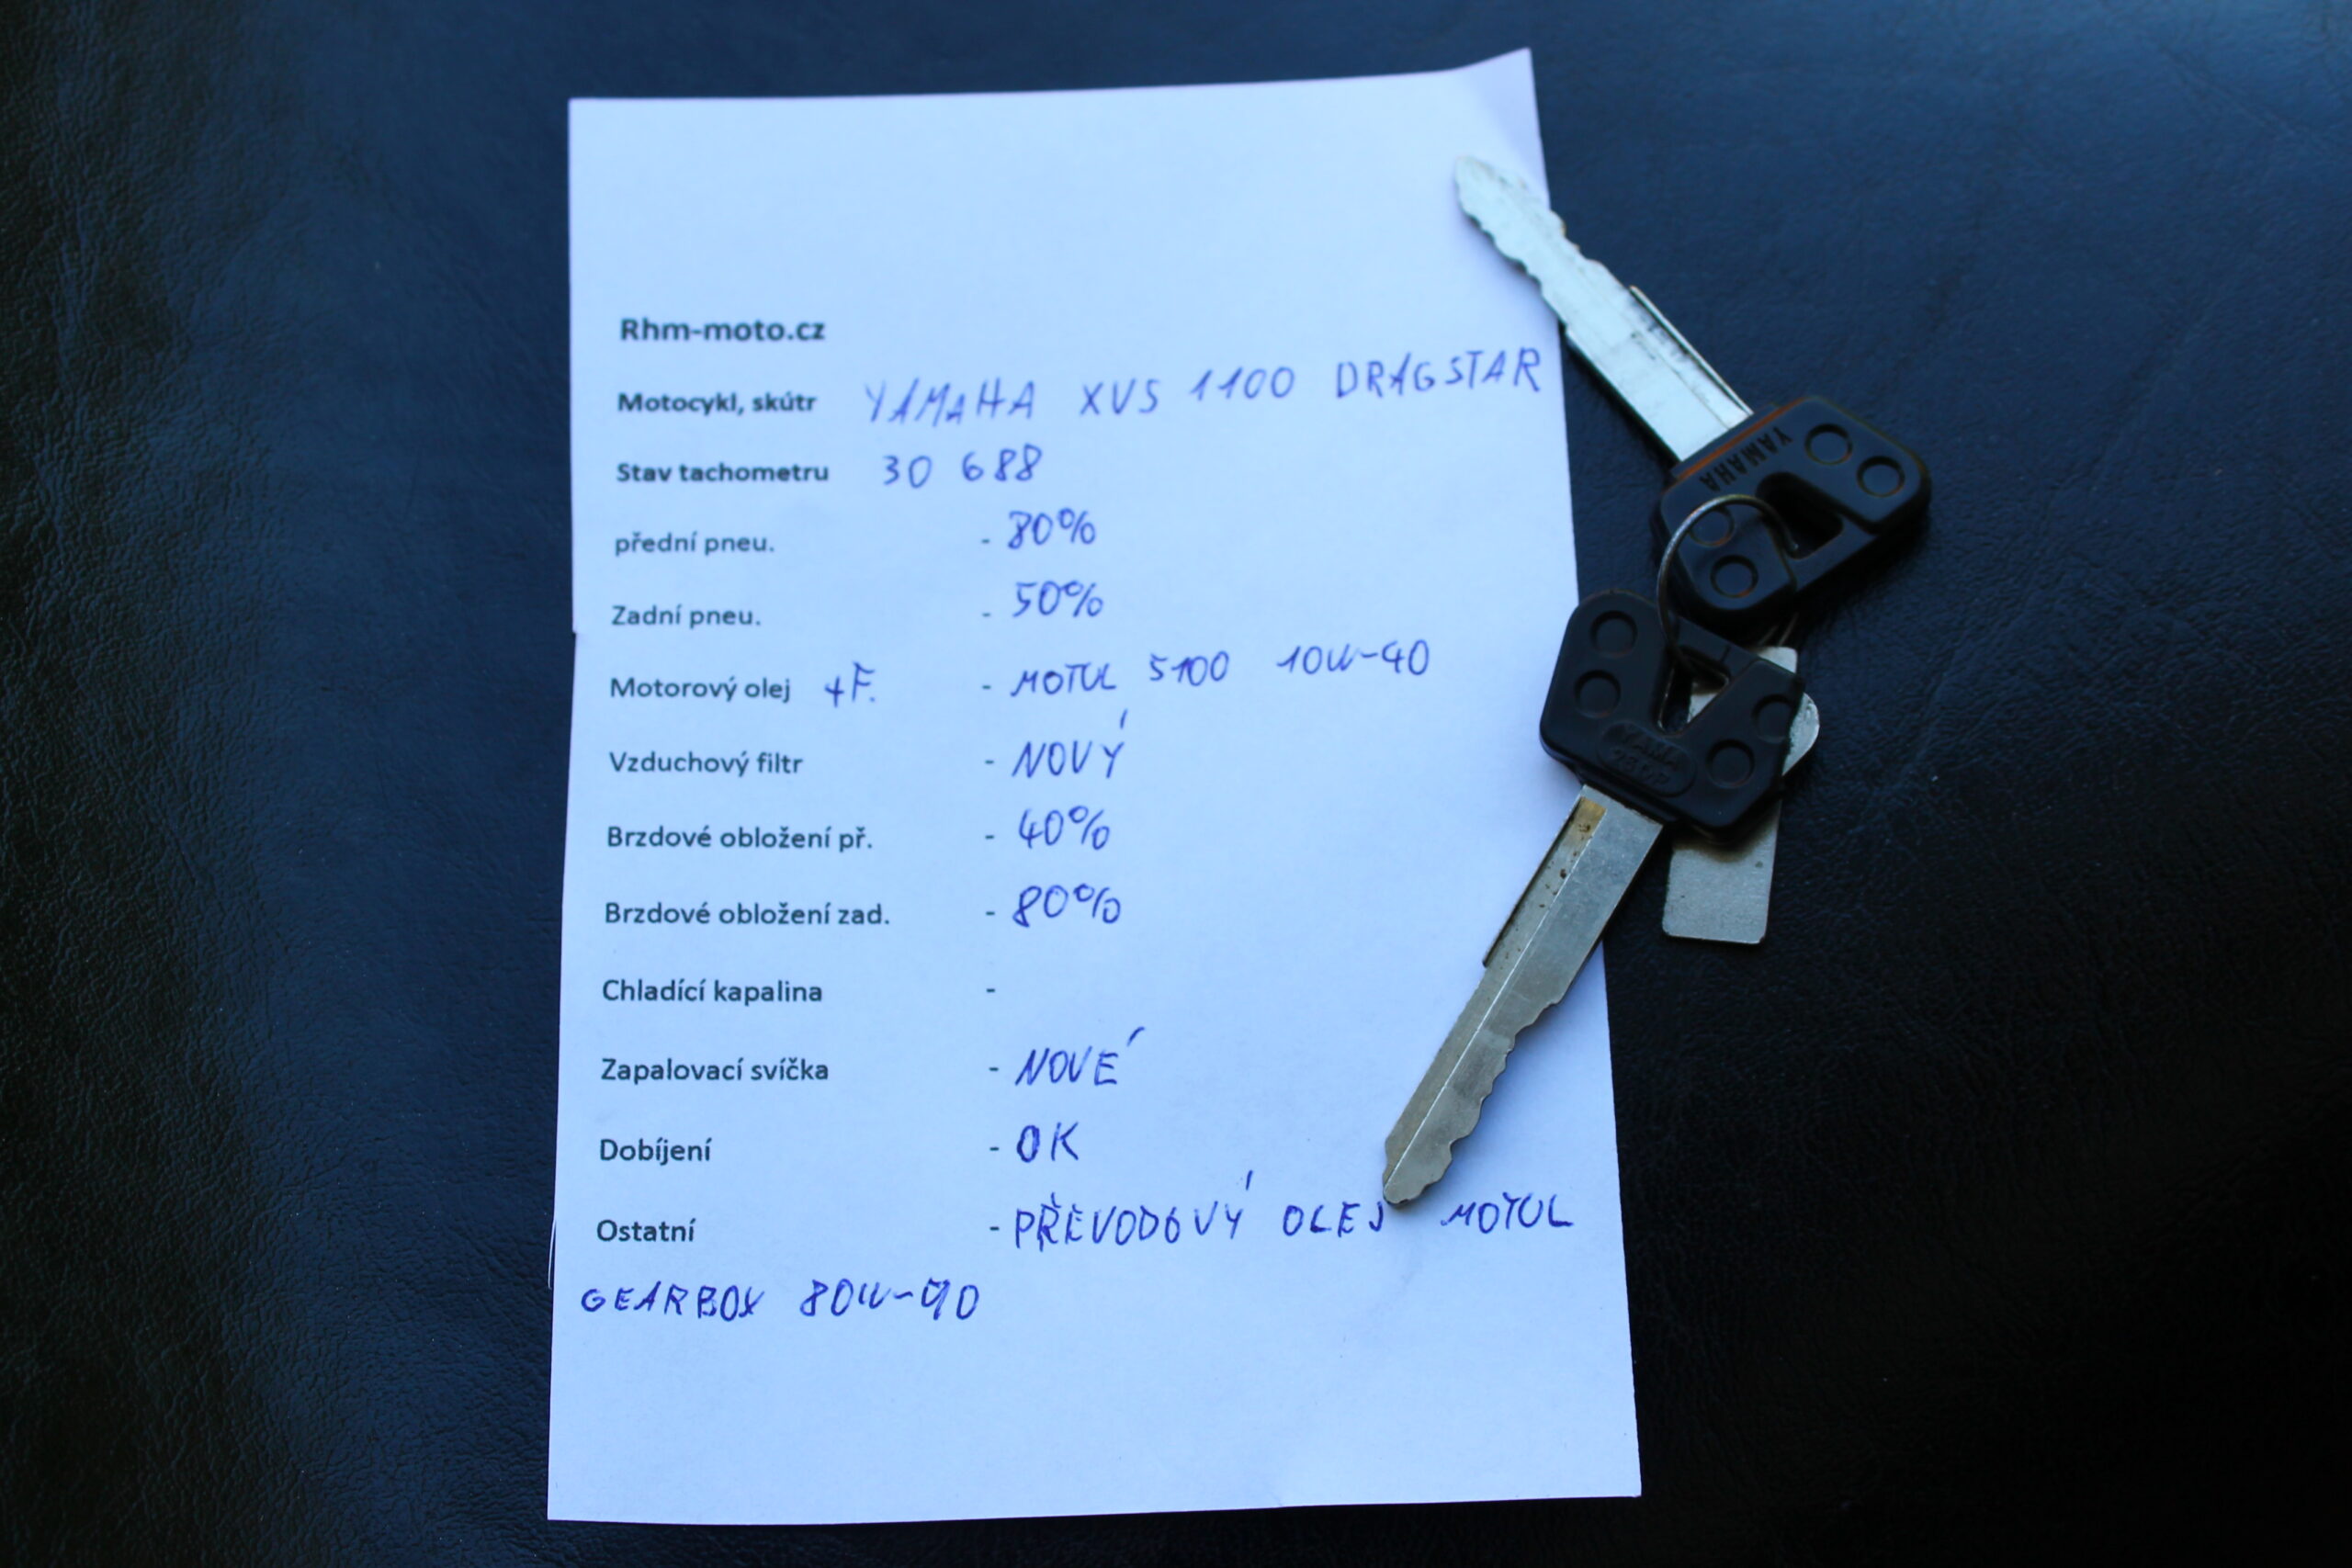 Rhm-moto.cz
Motocykl, skútr YAMAHA XVS 1100 DRAGSTAR
Stav tachometru 30 688
přední pneu. - 80%
Zadní pneu. - 50%
Motorový olej +F. - MOTUL 5100 10W-40
Vzduchový filtr - NOVÝ
Brzdové obložení př. - 40%
Brzdové obložení zad. - 80%
Chladící kapalina -
Zapalovací svíčka - NOVÉ
Dobíjení - OK
Ostatní - PŘEVODOVÝ OLEJ MOTUL
GEARBOX 80W-90
YAMAHA